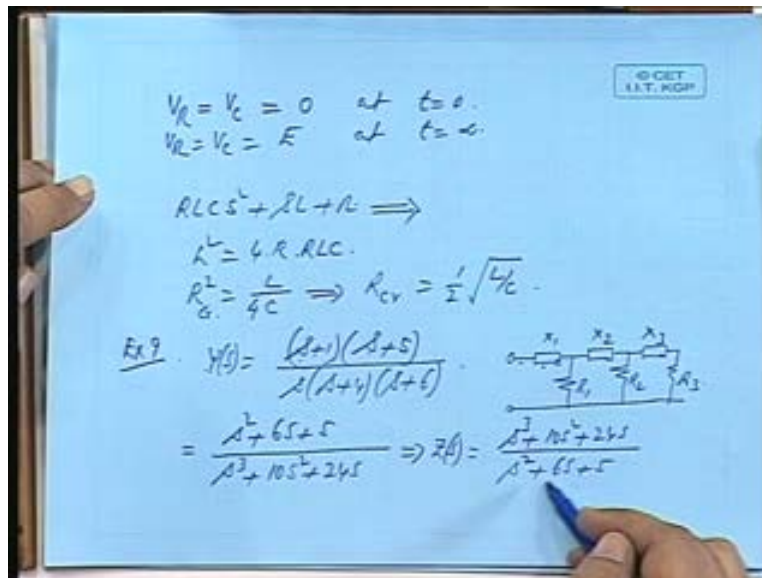 © CET
I.I.T. KGP
V_R = V_C = 0 at t=0.
V_R = V_C = E at t=∝.
RLCS² + SL + R ⟹
L² = 4.R.RLC.
R_G² = L/4C ⟹ R_cr = 1/2 √(L/C).
Ex 9. Y(s) = (s+1)(s+5) / s(s+4)(s+6).
X₁ X₂ X₃
R₁ R₂ R₃
= s²+6s+5 / s³+10s²+24s ⟹ Z(s) = s³+10s²+24s / s²+6s+5